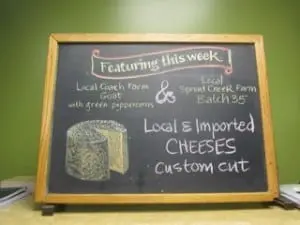 Featuring this week
Local Coach Farm
Goat
with green peppercorns
&
Local
Sprout Creek Farm
Batch 35
Local & Imported
CHEESES
custom cut